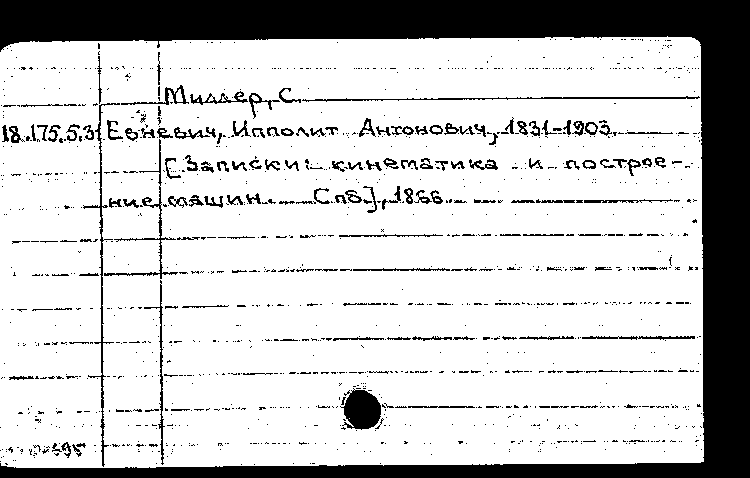 Миллер, С.
18.175.5.31 Евневич, Ипполит Антонович, 1831-1903.
[Записки: кинематика и построе-
ние машин. Спб], 1866.